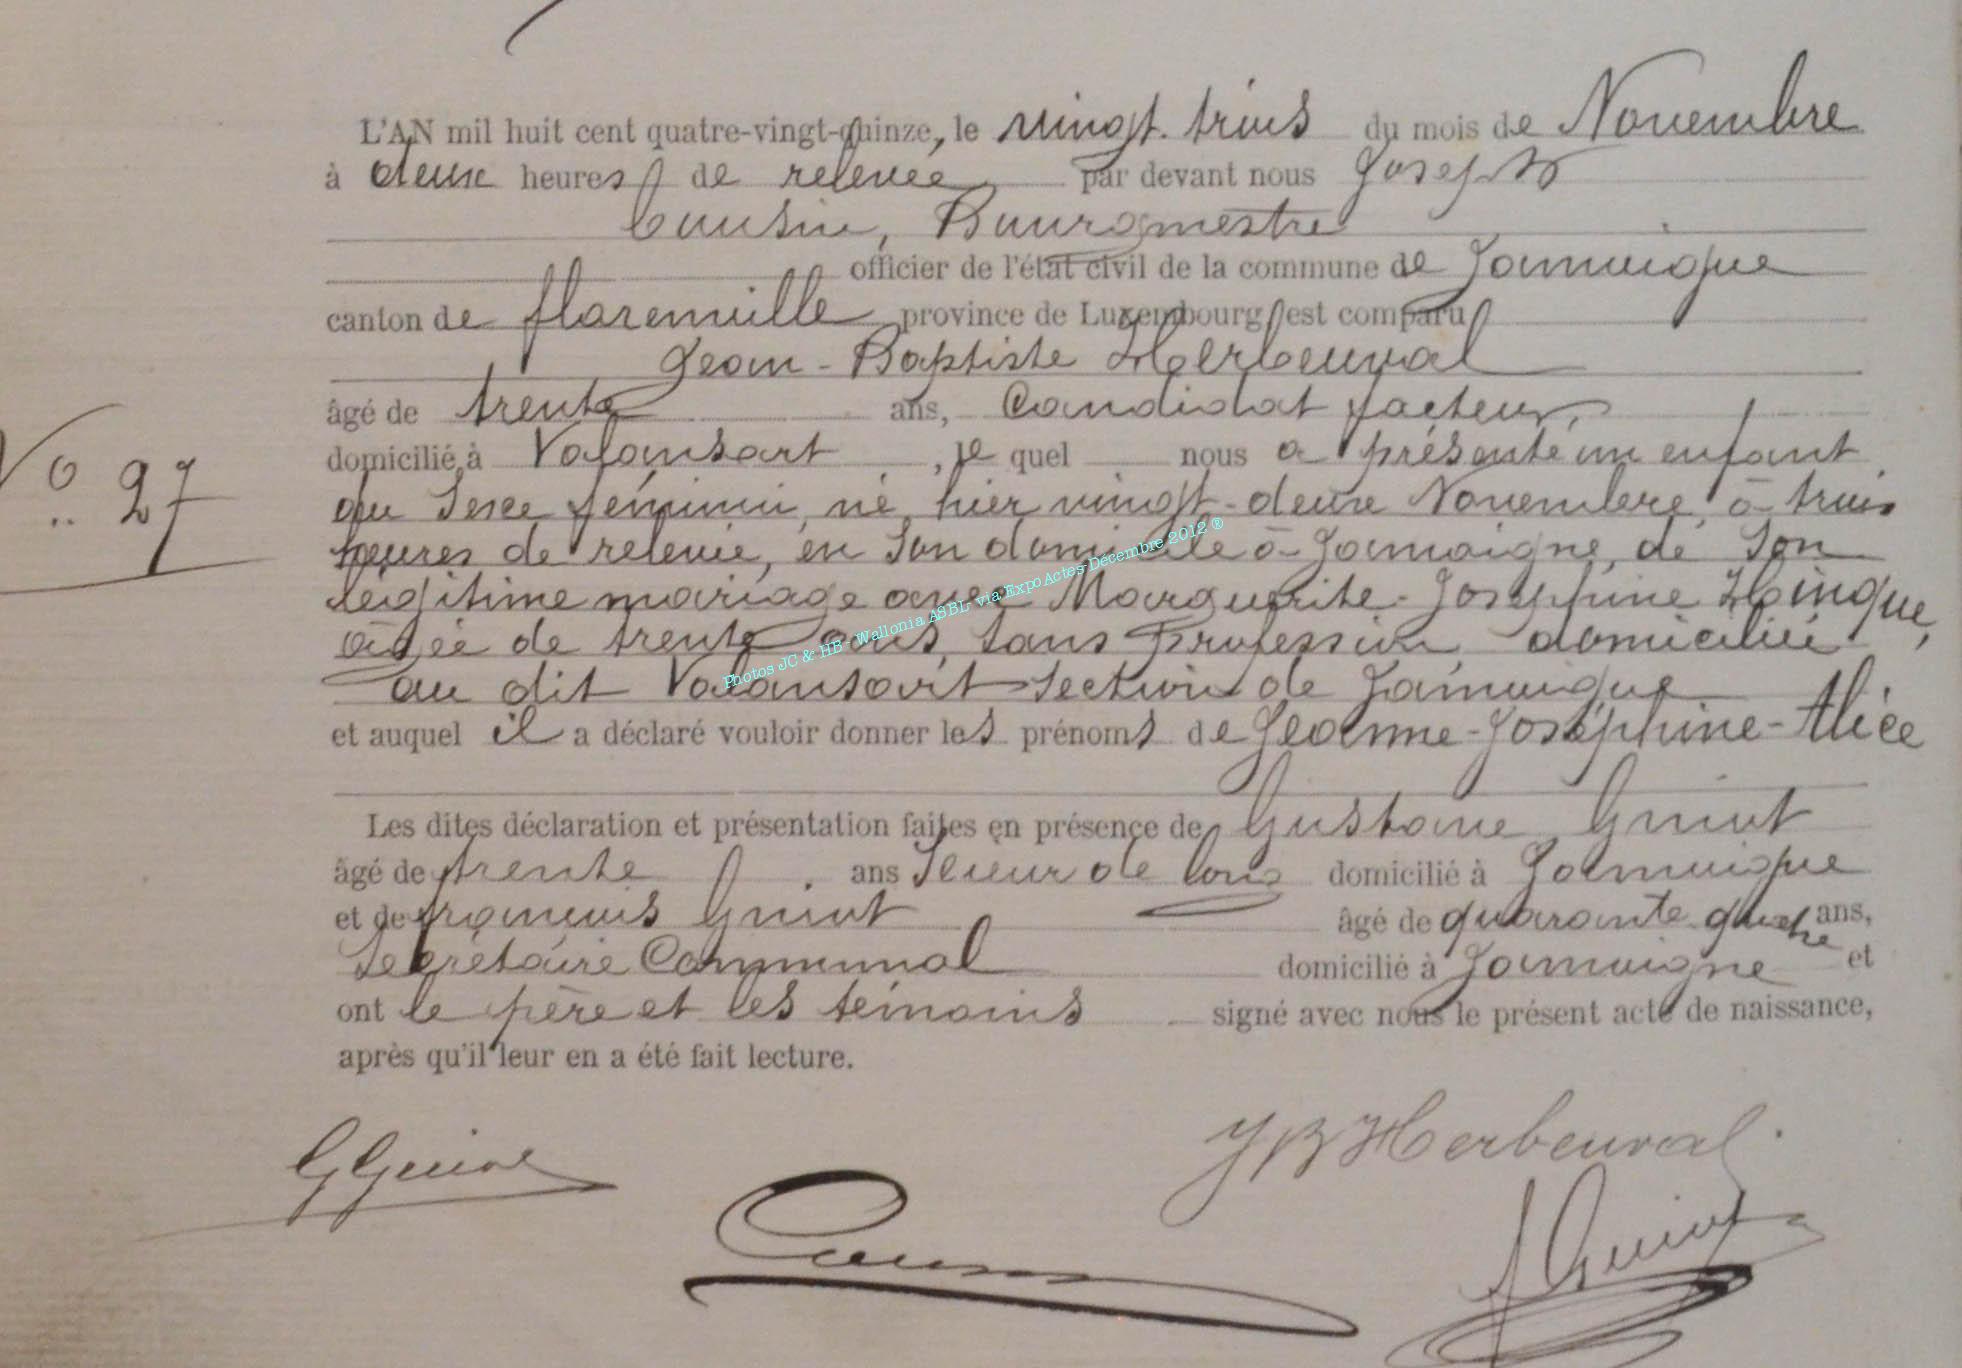 L'AN mil huit cent quatre-vingt-quinze, le vingt-trois du mois de Novembre
à deux heures de relevée, par devant nous Joseph
Cousin, Bourgmestre
officier de l'état civil de la commune de Jamoigne
canton de florenville province de Luxembourg est comparu
Jean-Baptiste Herbeuval
âgé de trente ans, Candidat facteur,
domicilié à Valansart, le quel nous a présenté un enfant
No 27
du Sexe féminin, né hier vingt-deux Novembre à trois
heures de relevée, en Son domicile à Jamoigne, de Son
légitime mariage avec Marguerite-Joséphine Hoingue,
âgée de trente ans, Sans profession, domiciliée
au dit Valansart Section de Jamoigne
et auquel il a déclaré vouloir donner les prénoms de Jeanne-Joséphine-Alice
Les dites déclaration et présentation faites en présence de Gustave Guiot
âgé de trente ans Scieur de long domicilié à Jamoigne
et de françois Guiot âgé de quarante quatre ans,
Secrétaire Communal domicilié à Jamoigne et
ont le père et les témoins signé avec nous le présent acte de naissance,
après qu'il leur en a été fait lecture.
Photos JC & HB - Wallonia ASBL via Expo Actes Décembre 2012 ®
JB Herbeuval
G Guiot
Cousin
f Guiot